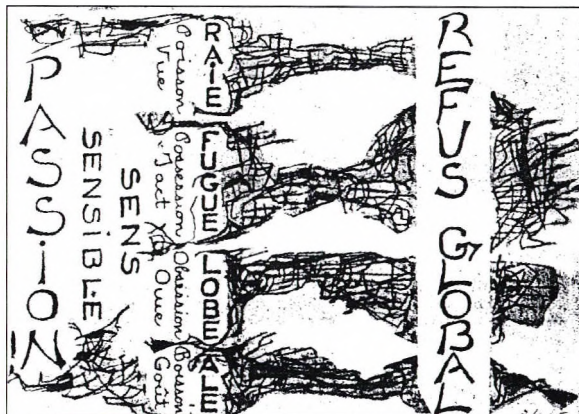 REFUS GLOBAL
RAIE FUGUE LOBE ALE
Poisson Possession Obsession Boisson
Vue Tact Ouïe Goût
SENS
SENSIBLE
PASSION